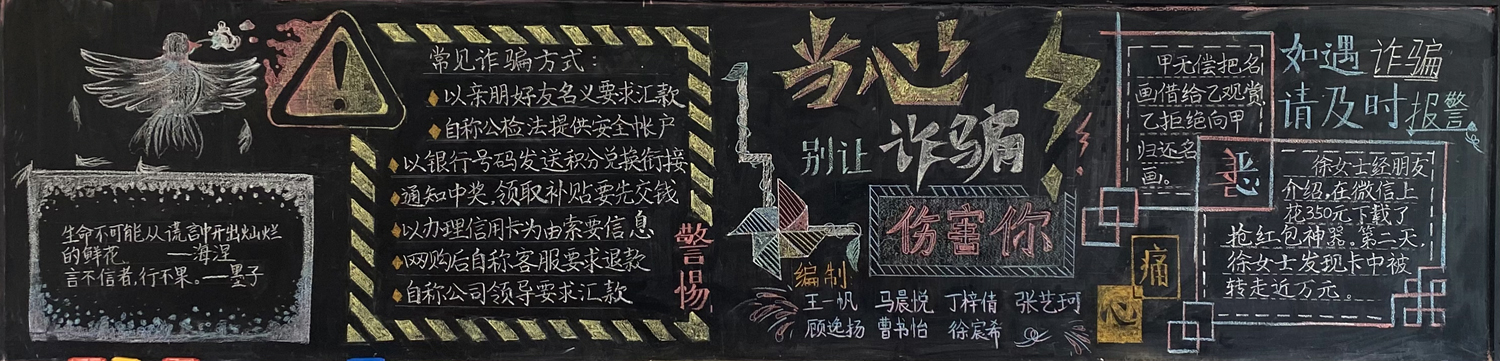 生命不可能从谎言中开出灿烂
的鲜花 ——海涅
言不信者,行不果。——墨子
常见诈骗方式:
以亲朋好友名义要求汇款
自称公检法提供安全帐户
以银行号码发送积分兑换衔接
通知中奖,领取补贴要先交钱
以办理信用卡为由索要信息
网购后自称客服要求退款
自称公司领导要求汇款
警惕
当心
别让诈骗
伤害你
编制
王一帆 马晨悦 丁梓倩 张艺珂
顾逸扬 曹书怡 徐宸希
甲无偿把名
画借给乙观赏
乙拒绝向甲
归还名
画。
恶
痛
心
如遇诈骗
请及时报警
徐女士经朋友
介绍,在微信上
花350元下载了
抢红包神器。第二天,
徐女士发现卡中被
转走近万元。